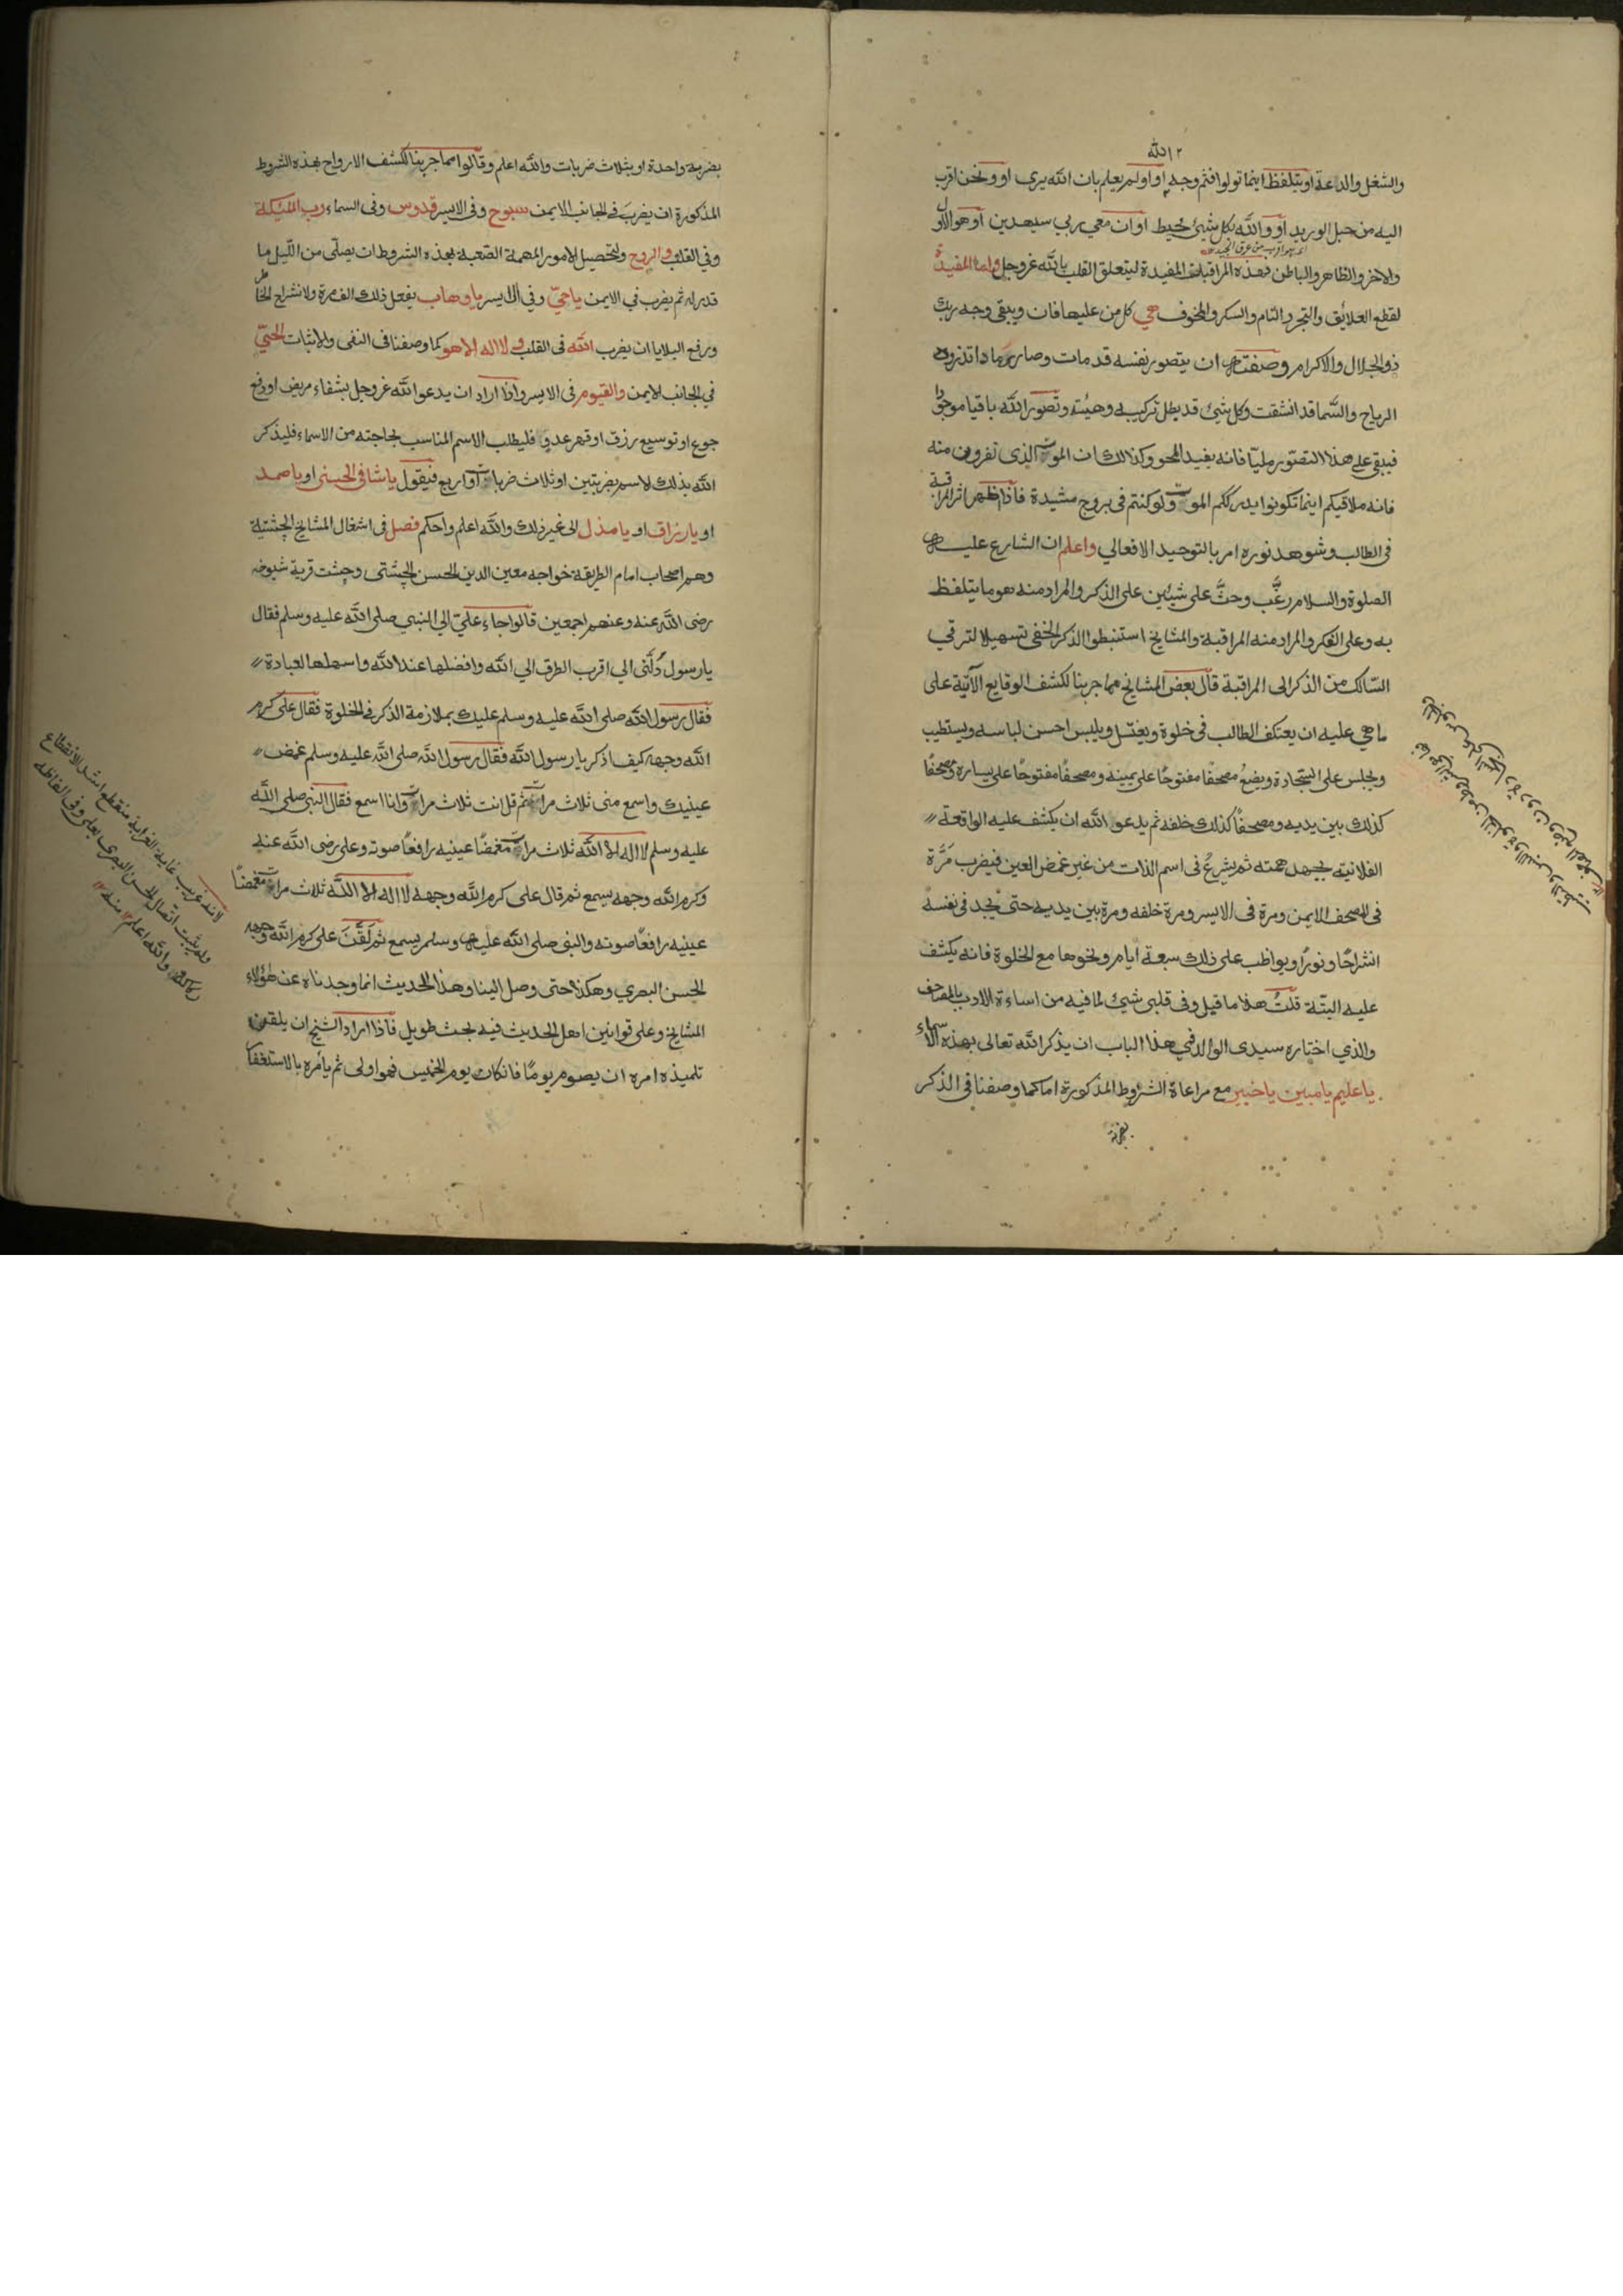 والشغل والدعة او يتلفظ اينما تولوا فثم وجه الله او اولم يعلم بان الله يرى او ونحن اقرب
اليه من حبل الوريد او والله بكل شيئ محيط او ان معي ربي سيهدين او هو الاول
والاخر والظاهر والباطن فهذه المراقبات المفيدة ليتعلق القلب بالله عز وجل واما المفيدة
لقطع العلايق والتجرد التام والسكر والمحو فهي كل من عليها فان ويبقى وجه ربك
ذو الجلال والاكرام وصفتها ان يتصور نفسه قد مات وصار رمادا تذروه
الرياح والسما قد انشقت وكل شيئ قد بطل تركيبه وهيئته وتصور الله باقيا موجودا
فيبقى على هذا التصور مليّا فانه يفيد المحو وكذالك ان الموت الذى تفرون منه
فانه ملاقيكم اينما تكونوا يدرككم الموت ولو كنتم فى بروج مشيدة فاذا ظهر اثر المراقبة
فى الطالب وشوهد نوره امر بالتوحيد الافعالي واعلم ان الشارع عليه
الصلوة والسلام رغَّب وحثَّ على شيئين على الذكر والمراد منه هو ما يتلفظ
به وعلى الفكر والمراد منه المراقبة والمشايخ استنبطوا الذكر الخفى تسهيلا لترقي
السّالك من الذكر الى المراقبة قال بعض المشايخ مما جربنا لكشف الوقايع الآتية على
ما هي عليه ان يعتكف الطالب فى خلوة ويغتسل ويلبس احسن لباسه ويستطيب
ويجلس على السجادة ويضع مصحفًا مفتوحًا على يمينه ومصحفًا مفتوحًا على يساره ومصحفًا
كذلك بين يديه ومصحفاً كذلك خلفه ثم يدعو الله ان يكشف عليه الواقعة
الفلانية بجهد همته ثم يشرعُ فى اسم الذات من غير غمض العين فيضرب مَرَّة
فى المصحف الايمن ومرة فى الايسر ومرة خلفه ومرة بين يديه حتى يجد فى نفسه
انشراحًا ونورًا ويواظب على ذلك سبعة ايام ونحوها مع الخلوة فانه يكشف
عليه البتّة قلتُ هذا ما قيل وفى قلبى شيئ لما فيه من اساءة الادب بالمصاحف
والذي اختاره سيدى الوالد في هذا الباب ان يذكر الله تعالى بهذه الاسماء
يا عليم يا مبين يا خبير مع مراعاة الشروط المذكورة اما كما وصفنا فى الذكر
بضربة
بضربة واحدة او بثلاث ضربات والله اعلم وقالوا مما جربنا لكشف الارواح بهذه الشروط
المذكورة ان يضربَ في الجانب الايمن سبوح وفى الايسر قدوس وفى السماء رب الملئكة
وفي القلب والروح ولتحصيل الامور المهمة الصّعبة بهذه الشروط ان يصلّى من اللّيل ما
قدر له ثم يضرب في الايمن يا حيّ وفي الايسر يا وهاب يفعل ذلك الف مرة ولانشراح الخاطر
ورفع البلايا ان يضرب الله فى القلب ولا اله الا هو كما وصفنا فى النفى والاثبات الحيّ
في الجانب الايمن والقيوم فى الايسر واذا اراد ان يدعو الله عز وجل بشفاء مريض او دفع
جوع او توسيع رزق او قهر عدو فليطلب الاسم المناسب لحاجته من الاسماء فليذكر
الله بذلك الاسم بضربتين او ثلاث ضربات او اربع فيقول يا شافى او يا صمد
او يا رزاق او يا مذل الى غير ذلك والله اعلم واحكم فصل فى اشغال المشايخ الجشتية
وهم اصحاب امام الطريقة خواجه معين الدين الحسن الجشتى وجشت قرية شيوخه
رضى الله عنه وعنهم اجمعين قالوا جاء عليّ الي النبي صلى الله عليه وسلم فقال
يا رسول دُلَّنى الي اقرب الطرق الي الله وافضلها عند الله واسهلها لعبادة
فقال رسول الله صلى الله عليه وسلم عليك بملازمة الذكر في الخلوة فقال على كرم
الله وجهه كيف اذكر يا رسول الله فقال رسول الله صلى الله عليه وسلم غمض
عينيك واسمع منى ثلاث مرات ثم قل انت ثلاث مرات وانا اسمع فقال النبي صلى الله
عليه وسلم لا اله الا الله ثلاث مرات مغمضًا عينيه رافعًا صوته وعلى رضى الله عنه
وكرم الله وجهه يسمع ثم قال على كرم الله وجهه لا اله الا الله ثلاث مرات مغمضًا
عينيه رافعًا صوته والنبي صلى الله عليه وسلم يسمع ثم لَقَّنَ على كرم الله وجهه
الحسن البصري وهكذا حتى وصل الينا وهذا الحديث انما وجدناه عن هؤلاء
المشايخ وعلى قوانين اهل الحديث فيه بحث طويل فاذا اراد الشيخ ان يلقن
تلميذه امره ان يصوم يومًا فان كان يوم الخميس فهو اولى ثم يأمره بالاستغفار
لانه غريب غاية الغرابة منقطع اشد الانقطاع
ولم يثبت اتصال الحسن البصرى بعلى وفى الفاظه
ركاكة والله اعلم منه